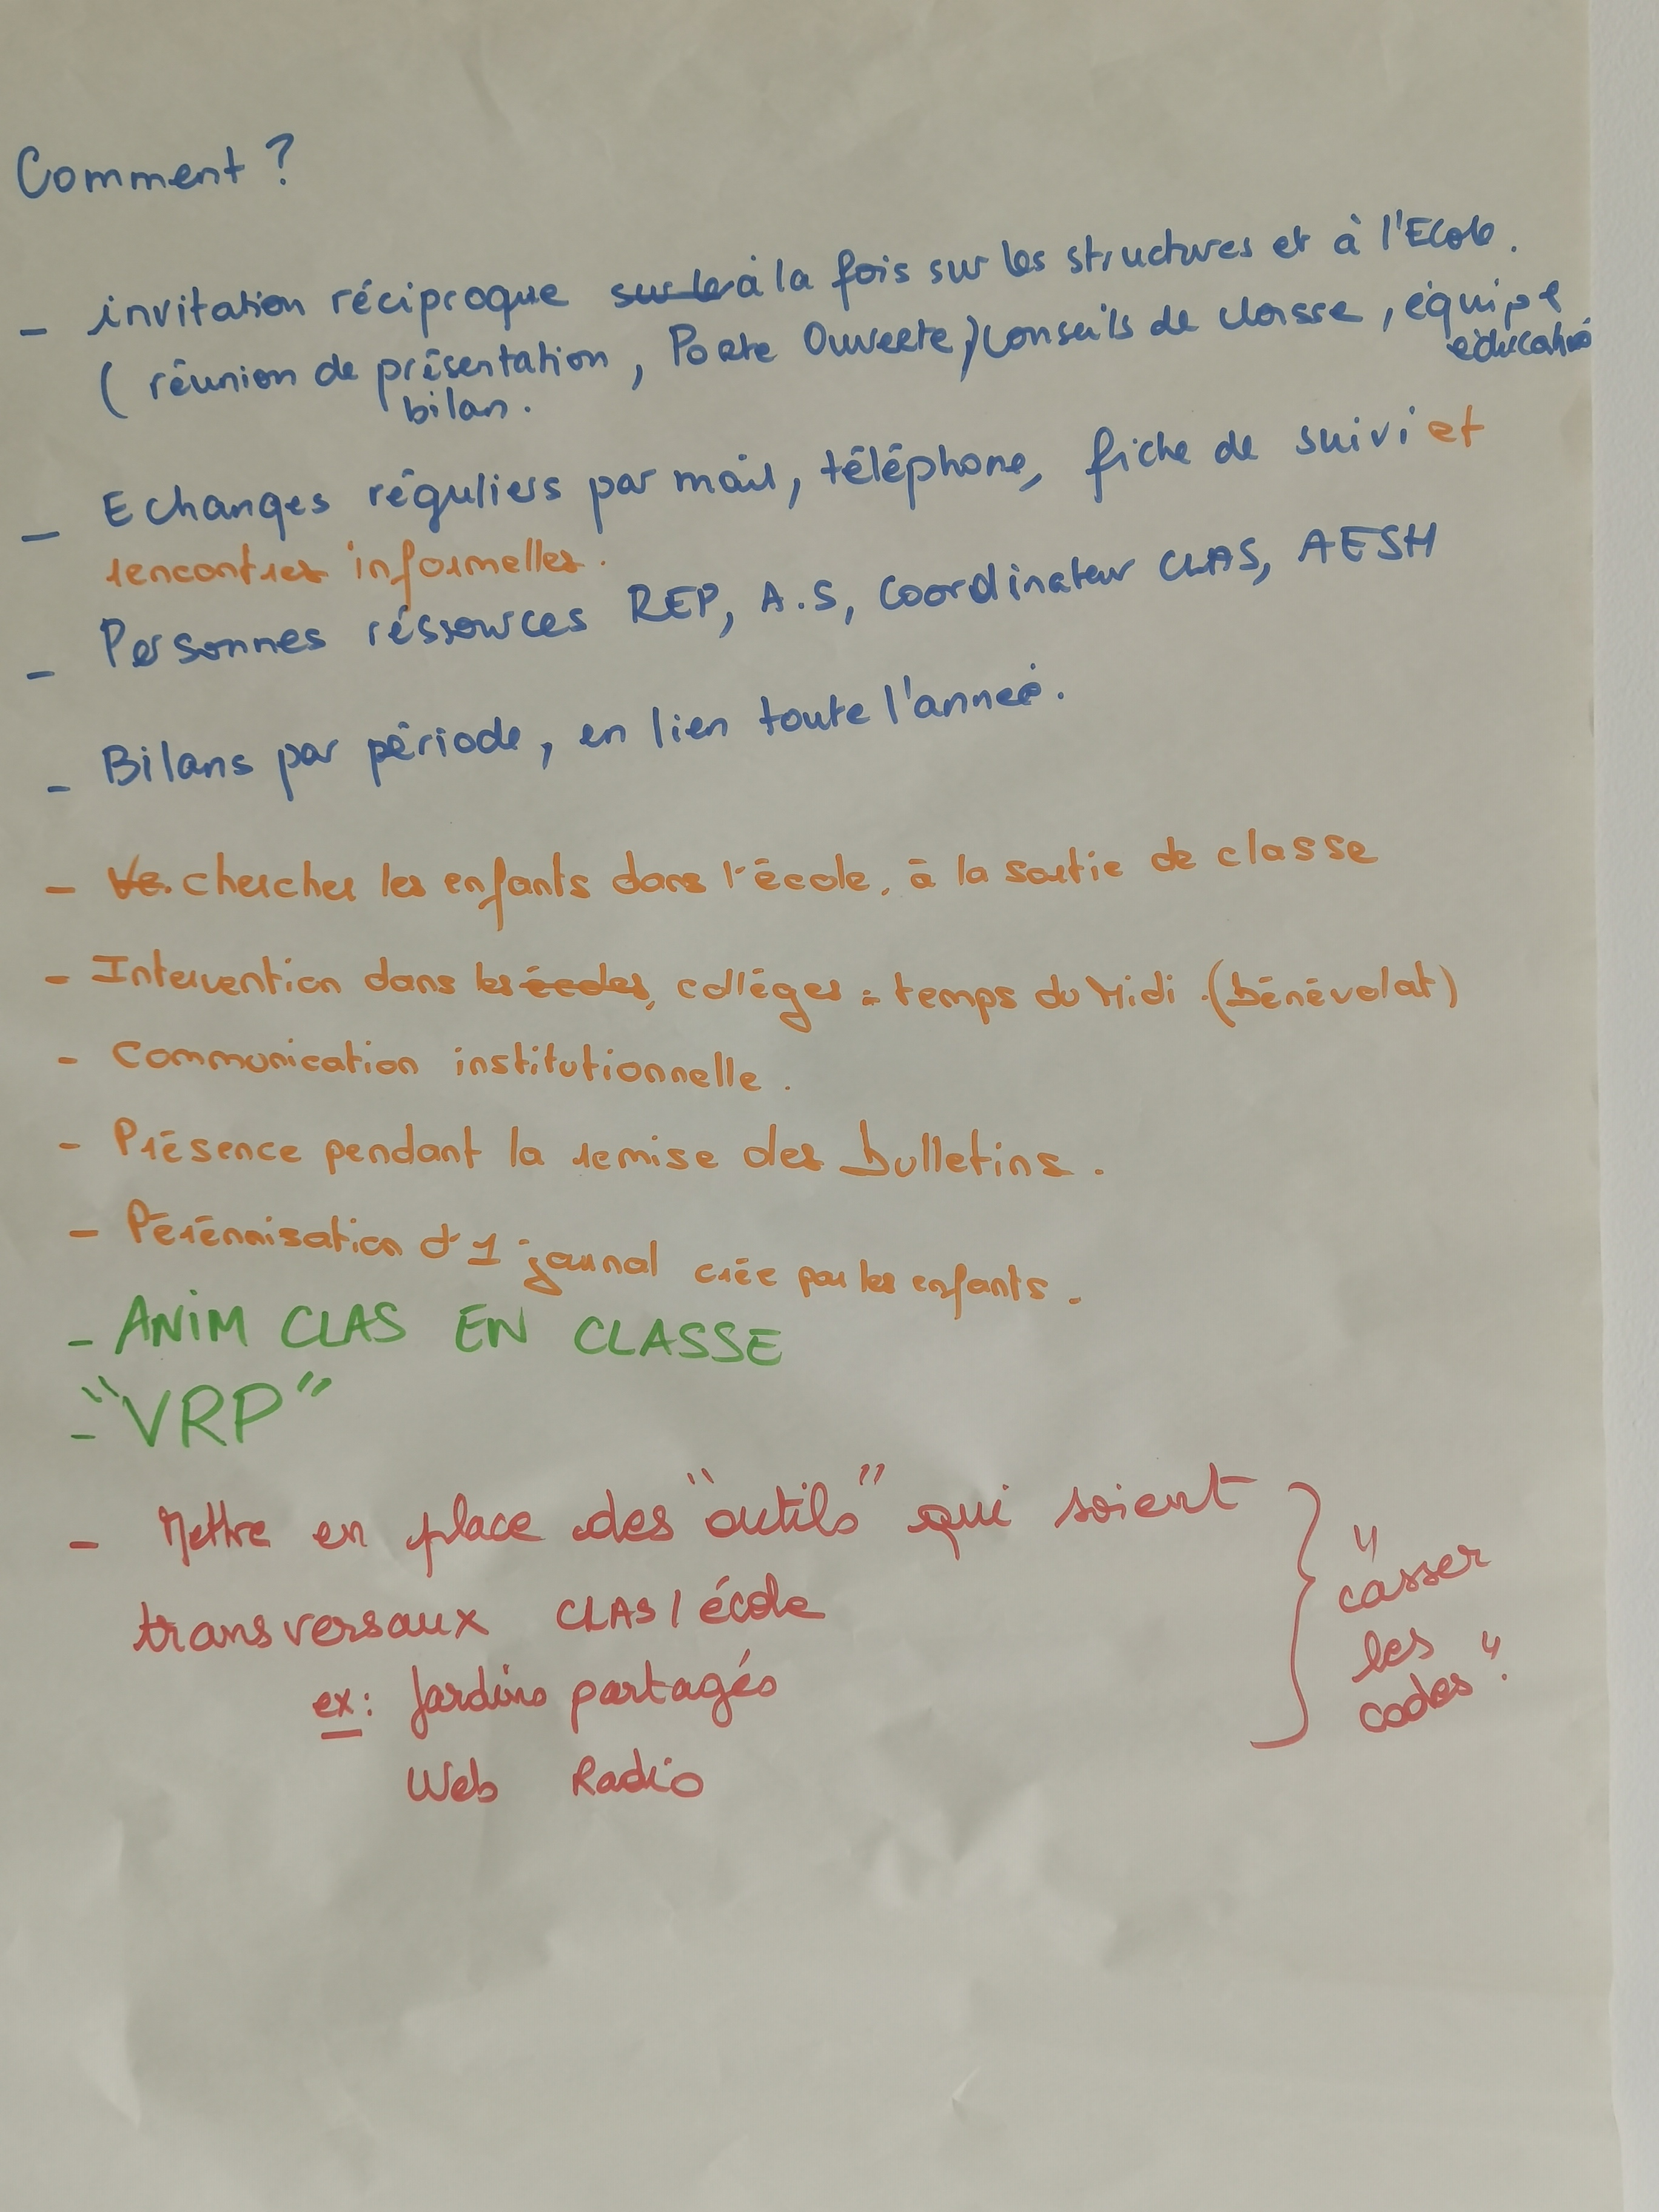 Comment ?
- invitation réciproque sur le à la fois sur les structures et à l'Ecole.
( réunion de présentation, Porte Ouverte,) conseils de classe, équipe
éducative
bilan.
- Echanges réguliers par mail, téléphone, fiche de suivi et
rencontres informelles.
- Personnes réssources REP, A.S, Coordinateur CLAS, AESH
- Bilans par période, en lien toute l'année.
- Ve. chercher les enfants dans l'école, à la sortie de classe
- Intervention dans les écoles, collèges = temps du Midi. (bénévolat)
- Communication institutionnelle.
- Présence pendant la remise des bulletins.
- Pérénnisation d'1 journal crée par les enfants.
- ANIM CLAS EN CLASSE
- "VRP"
- Mettre en place des "outils" qui soient
transversaux CLAS / école
ex: Jardins partagés
Web Radio
"casser
les
codes".